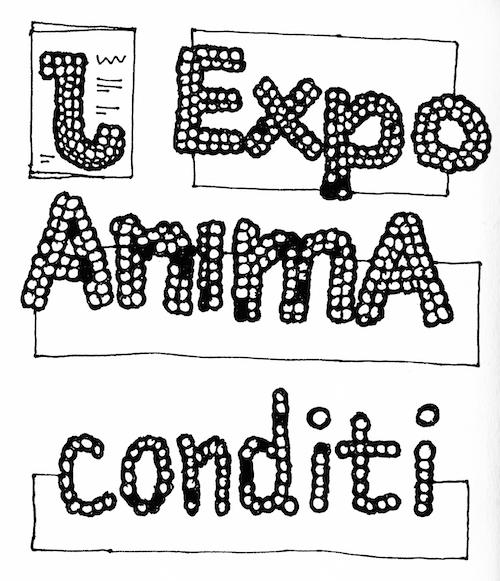 Expo
AnimA
conditi